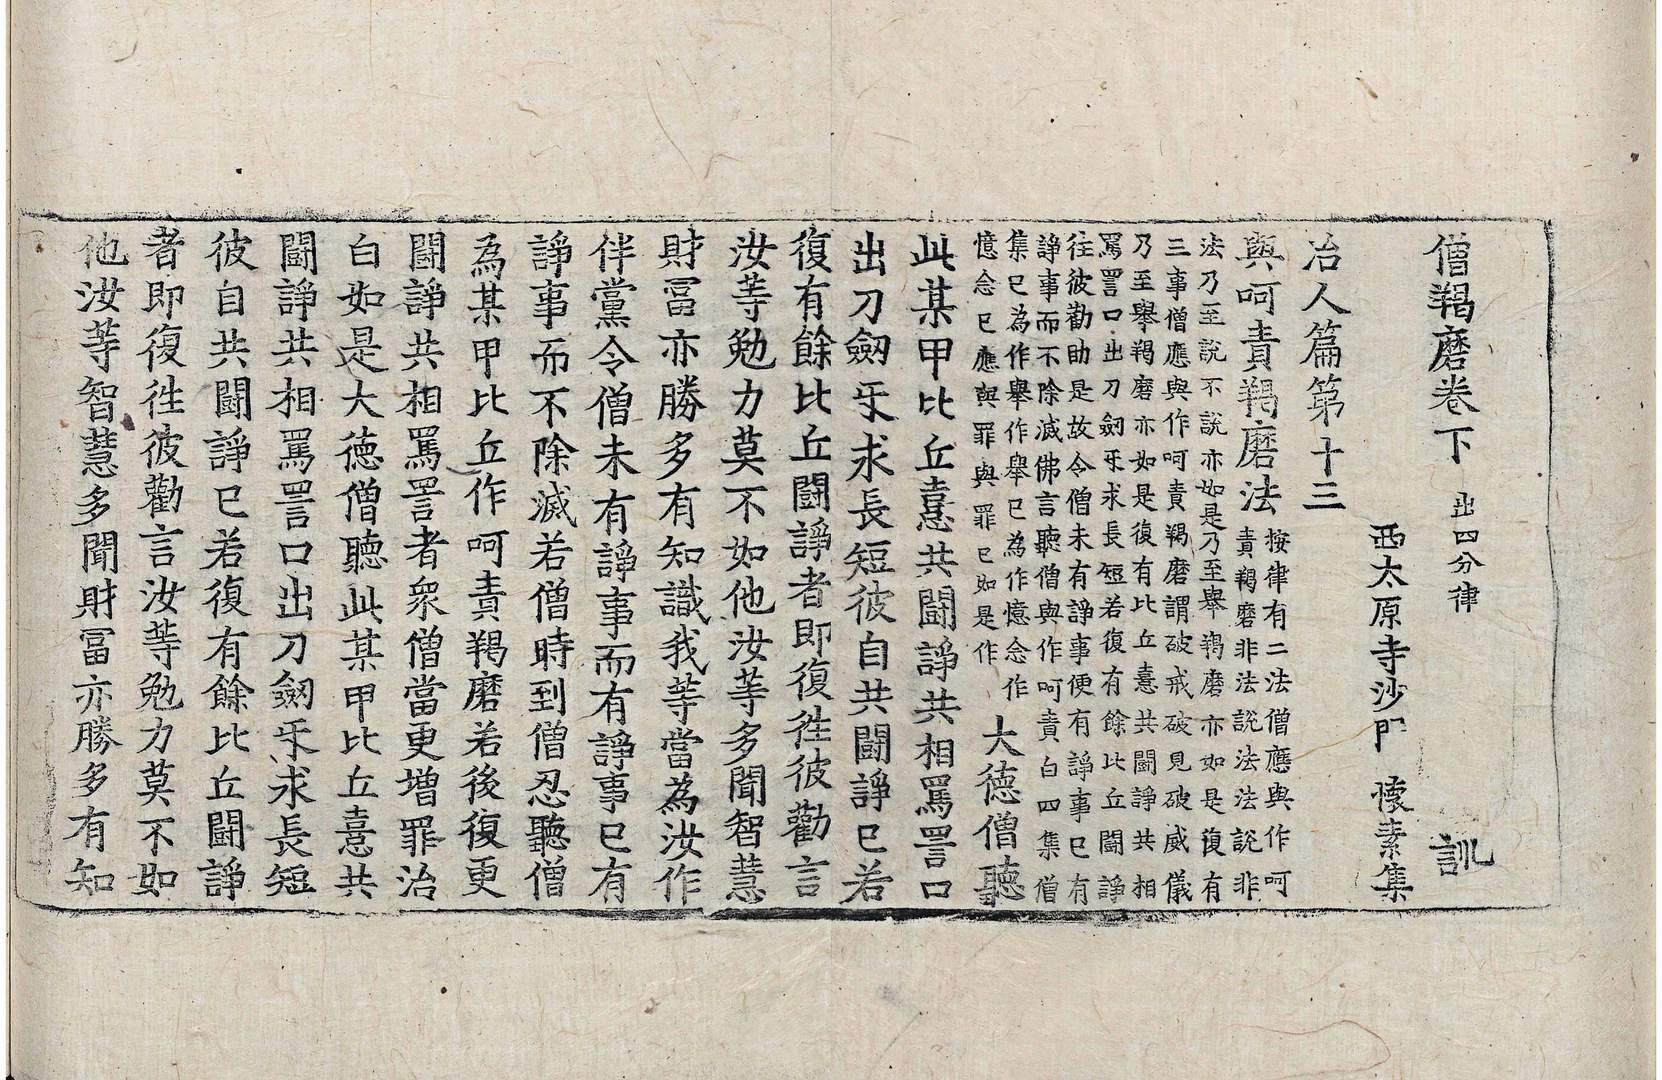 僧羯磨卷下 出四分律 訓
西太原寺沙門 懷素集
治人篇第十三
與呵責羯磨法 按律有二法僧應與作呵
責羯磨非法說法法說非
法乃至說不說亦如是乃至舉羯磨亦如是復有
三事僧應與作呵責羯磨謂破戒破見破威儀
乃至舉羯磨亦如是復有比丘憙共鬪諍共相
罵詈口出刀劒互求長短若復有餘比丘鬪諍
往彼勸助是故令僧未有諍事便有諍事已有
諍事而不除滅佛言聽僧與作呵責白四集僧
集已為作舉作舉已為作憶念作
憶念已應與罪與罪已如是作 大德僧聽
此某甲比丘憙共鬪諍共相罵詈口
出刀劒互求長短彼自共鬪諍已若
復有餘比丘鬪諍者即復往彼勸言
汝等勉力莫不如他汝等多聞智慧
財富亦勝多有知識我等當為汝作
伴黨令僧未有諍事而有諍事已有
諍事而不除滅若僧時到僧忍聽僧
為某甲比丘作呵責羯磨若後復更
鬪諍共相罵詈者眾僧當更增罪治
白如是大德僧聽此某甲比丘憙共
鬪諍共相罵詈口出刀劒互求長短
彼自共鬪諍已若復有餘比丘鬪諍
者即復往彼勸言汝等勉力莫不如
他汝等智慧多聞財富亦勝多有知